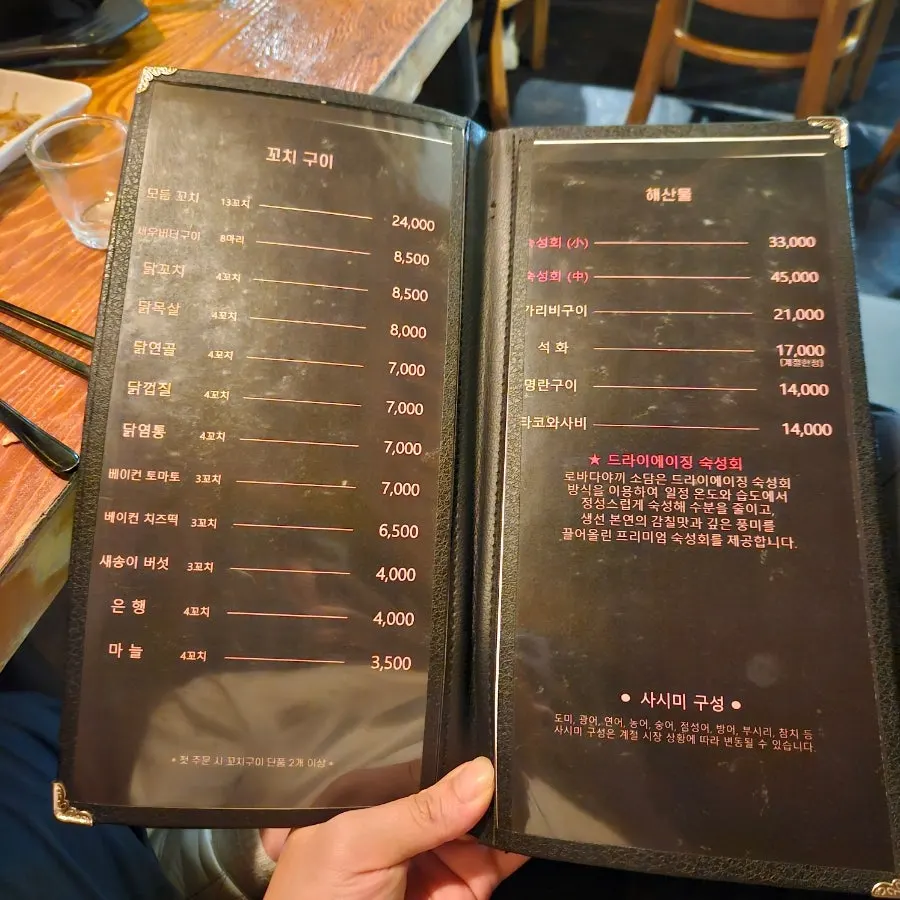 꼬치 구이
모듬 꼬치 13꼬치 24,000
새우버터구이 8마리 8,500
닭꼬치 4꼬치 8,500
닭목살 4꼬치 8,000
닭연골 4꼬치 7,000
닭껍질 4꼬치 7,000
닭염통 4꼬치 7,000
베이컨 토마토 3꼬치 7,000
베이컨 치즈떡 3꼬치 6,500
새송이 버섯 3꼬치 4,000
은 행 4꼬치 4,000
마 늘 4꼬치 3,500
* 첫 주문 시 꼬치구이 단품 2개 이상 *
해산물
숙성회 (小) 33,000
숙성회 (中) 45,000
가리비구이 21,000
석 화 17,000
(계절한정)
명란구이 14,000
타코와사비 14,000
★ 드라이에이징 숙성회
로바다야끼 소담은 드라이에이징 숙성회
방식을 이용하여 일정 온도와 습도에서
정성스럽게 숙성해 수분을 줄이고,
생선 본연의 감칠맛과 깊은 풍미를
끌어올린 프리미엄 숙성회를 제공합니다.
● 사시미 구성 ●
도미, 광어, 연어, 농어, 숭어, 점성어, 방어, 부시리, 참치 등
사시미 구성은 계절 시장 상황에 따라 변동될 수 있습니다.